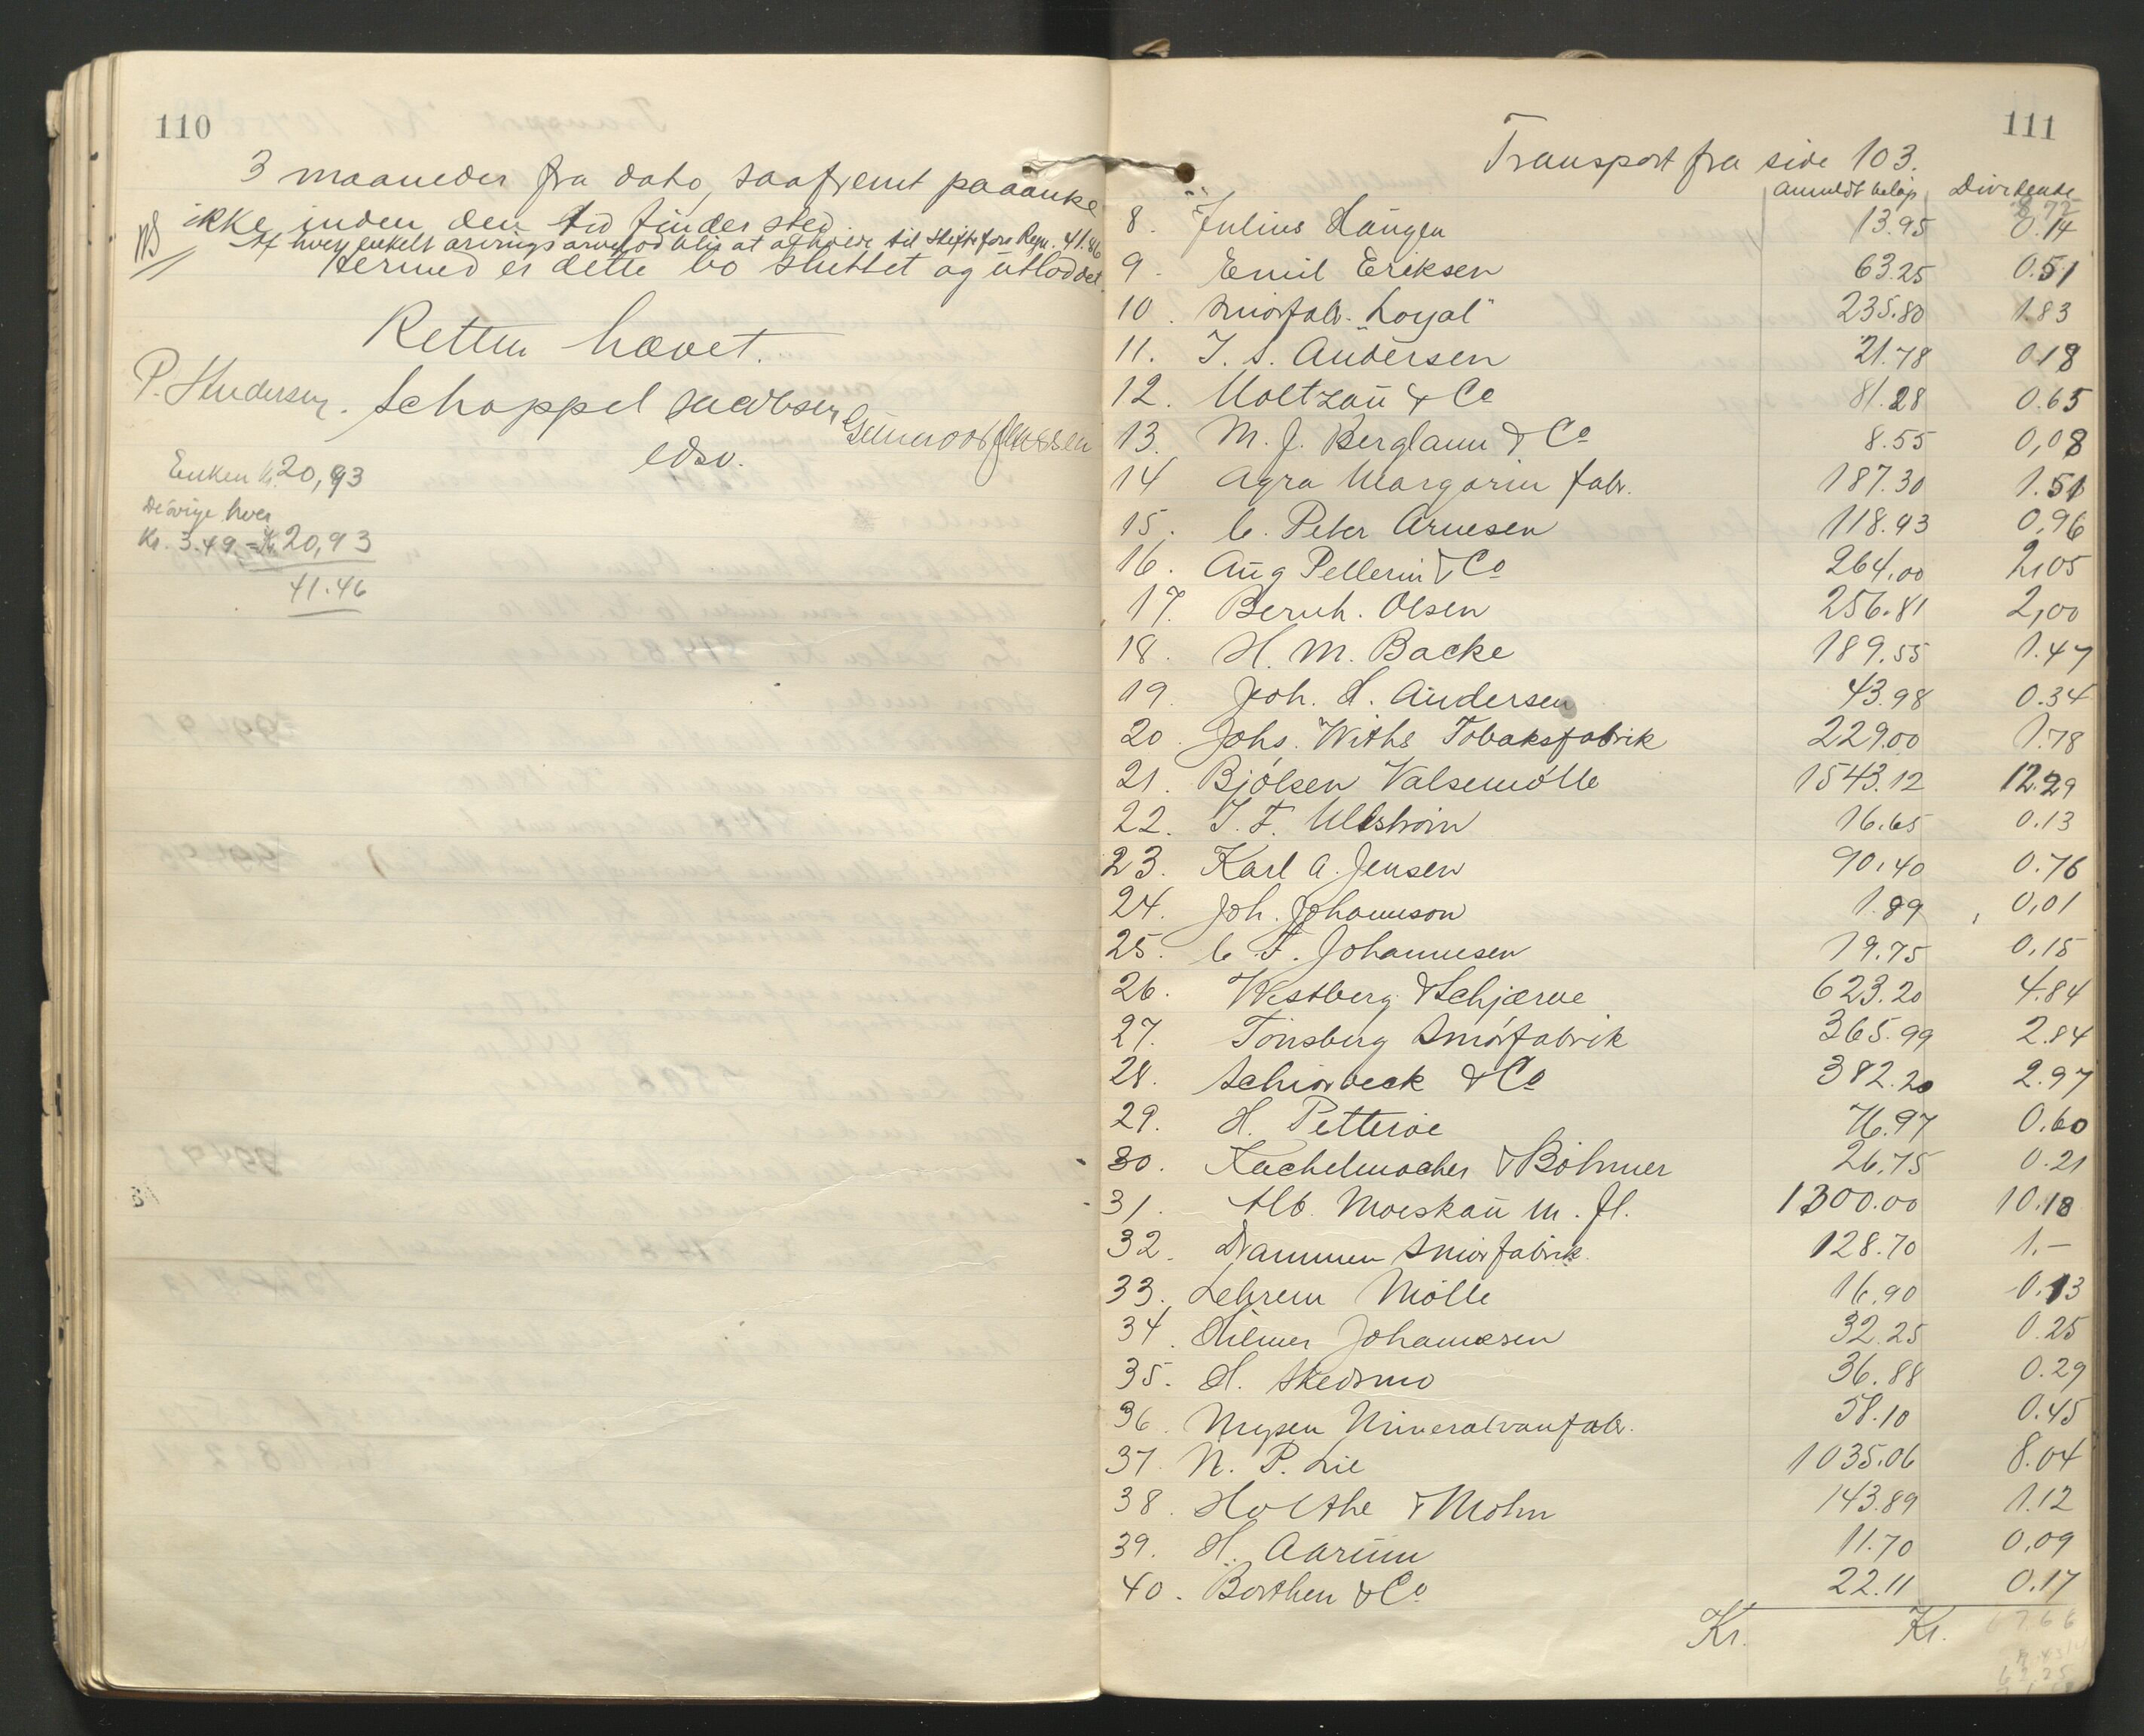 110
3 maaneder fra dato, saafremt paaanke
ikke inden den tid finder sted
Af hver enkelt arvings arvelod blir at
til Skiftefors Regn. 41.86
NB
Hermed er dette bo sluttet og utloddet.
Retten hævet.
P. Andersen. Schappel Jacobsen Gunerood Jenssen
edsv.
Enken kr. 20,93
De øvrige hver
Kr. 3.49 = Kr. 20,93
41.46
111
Transport fra side 103.
anmeldt beløp Dividende
8. Julius Haugen 13.95 0.14
9. Emil Eriksen 63.25 0.51
10. Smörfabr. "Loyal" 235.80 1.83
11. J. S. Andersen 21.78 0.18
12. Moltzau & Co 81.28 0.65
13. M. J. Berglann & Co 8.55 0,08
14 Agra Margarin fabr. 187.30 1.51
15. C. Peter Arnesen 118.93 0,96
16. Aug Pellerin & Co 264.00 2,05
17. Bernh. Olsen 256.81 2,00
18. H. M. Backe 189.55 1.47
19. Joh. H. Andersen 43.98 0.34
20. Johs. Withs Tobaksfabrik 229.00 1.78
21. Bjölsen Valsemölle 1543.12 12.29
22. J. F. Ullström 16.65 0.13
23. Karl A. Jensen 90.40 0.76
24. Joh. Johannson 1.89 0,01
25. C. F. Johannesen 19.75 0.15
26. Westberg & Schjærve 623.20 4.84
27. Tönsberg Smörfabrik 365.99 2.84
28. Schiörbeck & Co 382.20 2.97
29. H. Petteröe 76.97 0.60
30. Kachelmacher & Böhmer 26.75 0.21
31. Alb. Moeskau m. fl. 1300.00 10.18
32. Drammen Smörfabrik 128.70 1.–
33. Lehrem Mölle 16.90 0.13
34. Hilmer Johannesen 32.25 0.25
35. H. Skedsmo 36.88 0.29
36. Mysen Mineralvanfabr. 58.10 0.45
37. N. P. Lie 1035.06 8.04
38. Holthe & Mohn 143.89 1.12
39. H. Aarum 11.70 0,09
40. Borthen & Co 22.11 0.17
Kr. Kr. 67.66